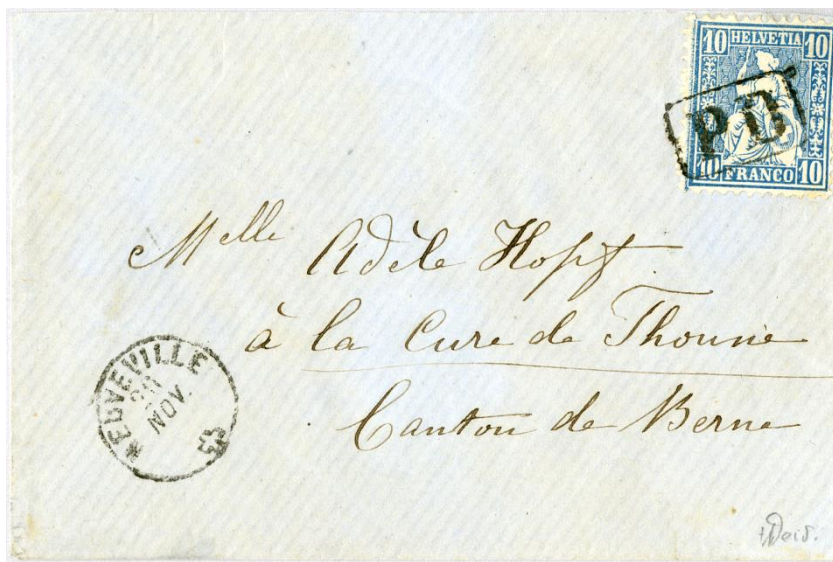 10 HELVETIA 10
P.D
10 FRANCO 10
Melle Adèle Hopf
à la Cure de Thoune
Canton de Berne
NEUVEVILLE
NOV.